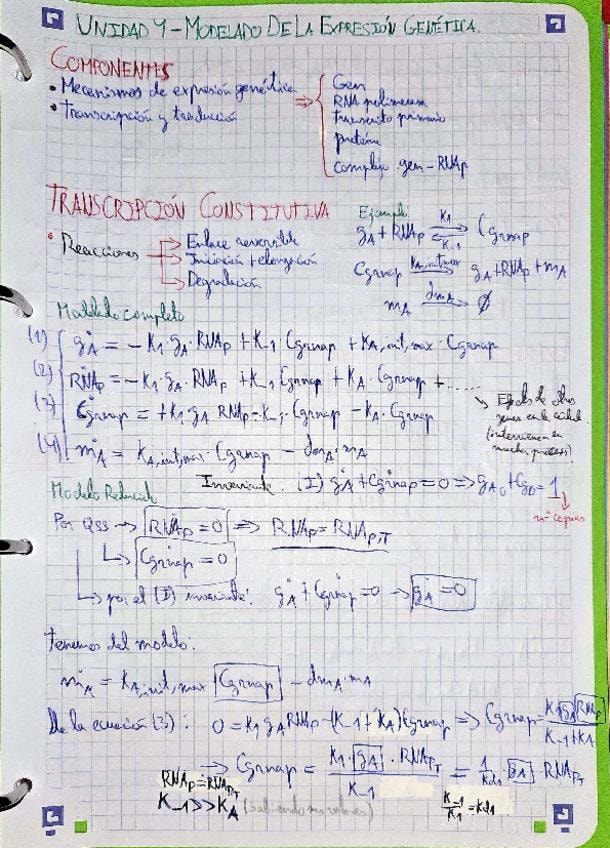 UNIDAD 4 - MODELADO DE LA EXPRESIÓN GENÉTICA.
COMPONENTES
• Mecanismos de expresión genética ⇒ { Gen
• Transcripción y traducción
RNA polimerasa
transcrito primario
proteína
complejo gen - RNAp
TRANSCRIPCIÓN CONSTITUTIVA
• Reacciones → Enlace reversible
→ Iniciación + elongación
→ Degradación
Ejemplo
gA + RNAp ⇌ (K1, K-1) Cgrnap
Cgrnap →(KA,init,max) gA + RNAp + mA
mA →(dmA) ∅
Modelado completo
(1) ġA = - K1 · gA · RNAp + K-1 Cgrnap + KA,init,max · Cgrnap
(2) RNȦp = - K1 · gA · RNAp + K-1 Cgrnap + KA · Cgrnap + .....
(3) Ċgrnap = + K1 · gA RNAp - K-1 · Cgrnap - KA · Cgrnap
(4) ṁA = KA,init,max · Cgrnap - dmA · mA
↘ Efectos de otros
genes en la célula
(intervienen en
muchos procesos)
Modelo Reducido
Invariante (I) ġA + Ċgrnap = 0 ⇒ gA0 + Cg0 = 1
nº copias
Por QSS → RNȦp = 0 ⇒ RNAp = RNAp,T
↳ Ċgrnap = 0
↳ por el (I) invariante: ġA + Ċgrnap = 0 → ġA = 0
tenemos del modelo:
ṁA = KA,init,max Cgrnap - dmA · mA
De la ecuación (3): 0 = K1 gA RNAp - (K-1 + KA) Cgrnap ⇒ Cgrnap = K1 gA RNAp / K-1 + KA
→ Cgrnap = K1 · gA · RNApT / K-1 = 1/Kd1 · gA · RNApT
RNAp = RNApT
K-1 >> KA
K-1/K1 = Kd1